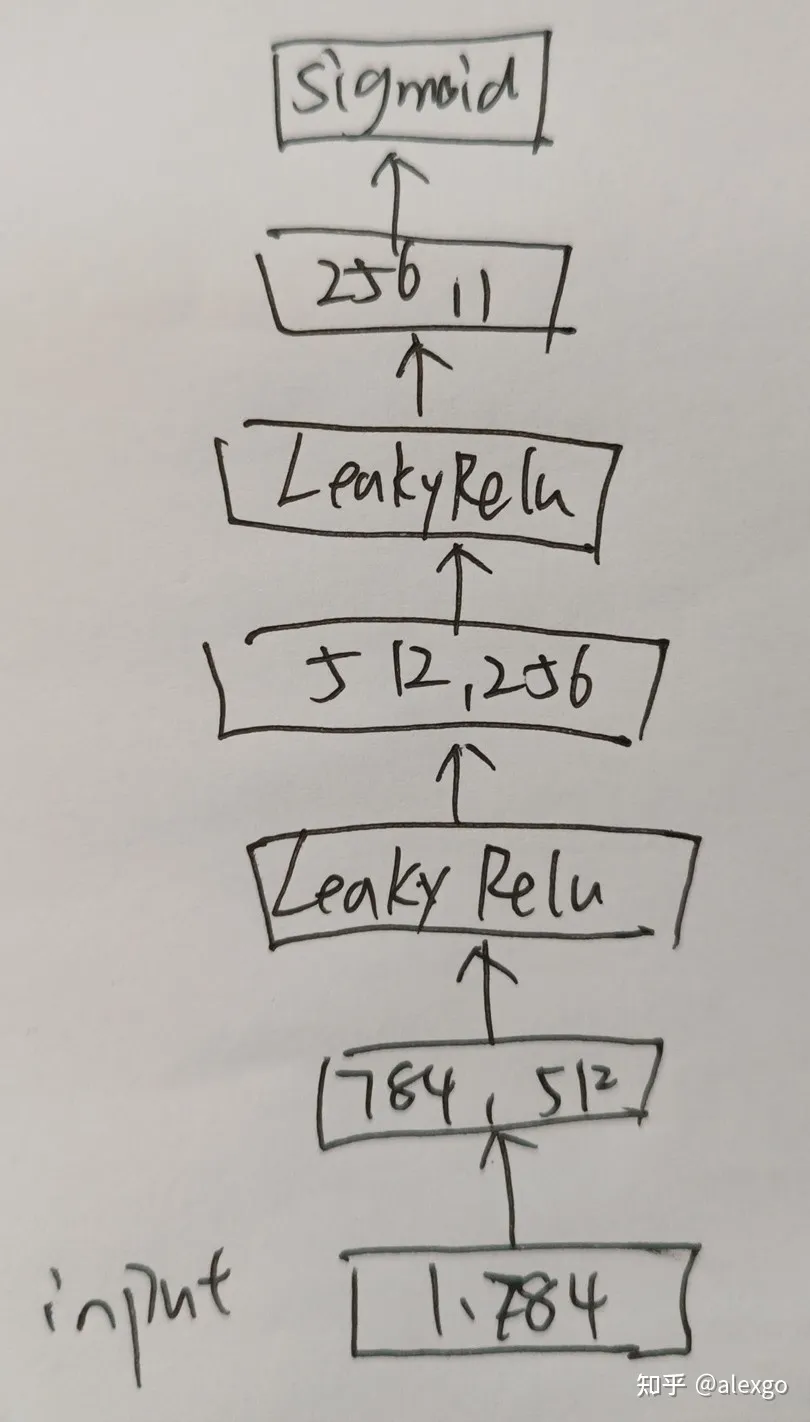 Sigmoid
256,1
LeakyRelu
512,256
Leaky Relu
784, 512
input
1,784
知乎 @alexgo